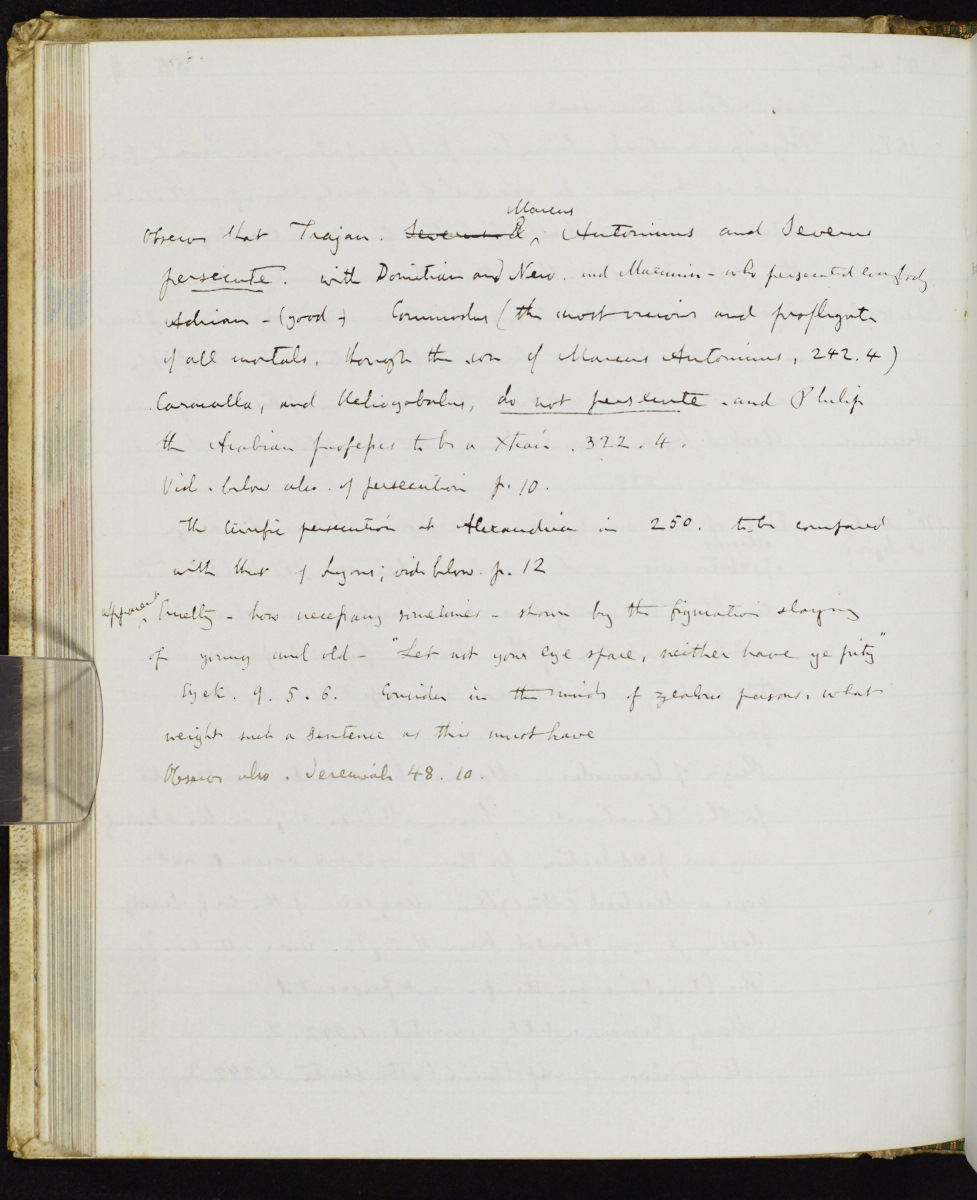 Observe that Trajan. Severus & Marcus Antoninus and Severus
persecute. with Domitian and Nero. and Maximin - who persecuted everybody
Adrian - (good +) Commodus (the most vicious and profligate
of all mortals. though the son of Marcus Antoninus, 242.4)
Caracalla, and Heliogabalus, do not persecute. and Philip
the Arabian professes to be a Xtian. 322.4.
Vid. below also. of persecution p. 10.
The terrific persecution at Alexandria in 250. to be compared
with that of Lyons; vide below. p. 12
apparent Cruelty - how necessary sometimes - shown by the figurative slaying
of young and old - "Let not your eye spare, neither have ye pity"
Ezek. 9. 5. 6. Consider in the minds of zealous persons, what
weight such a sentence as this must have
Observe also. Jeremiah 48. 10.